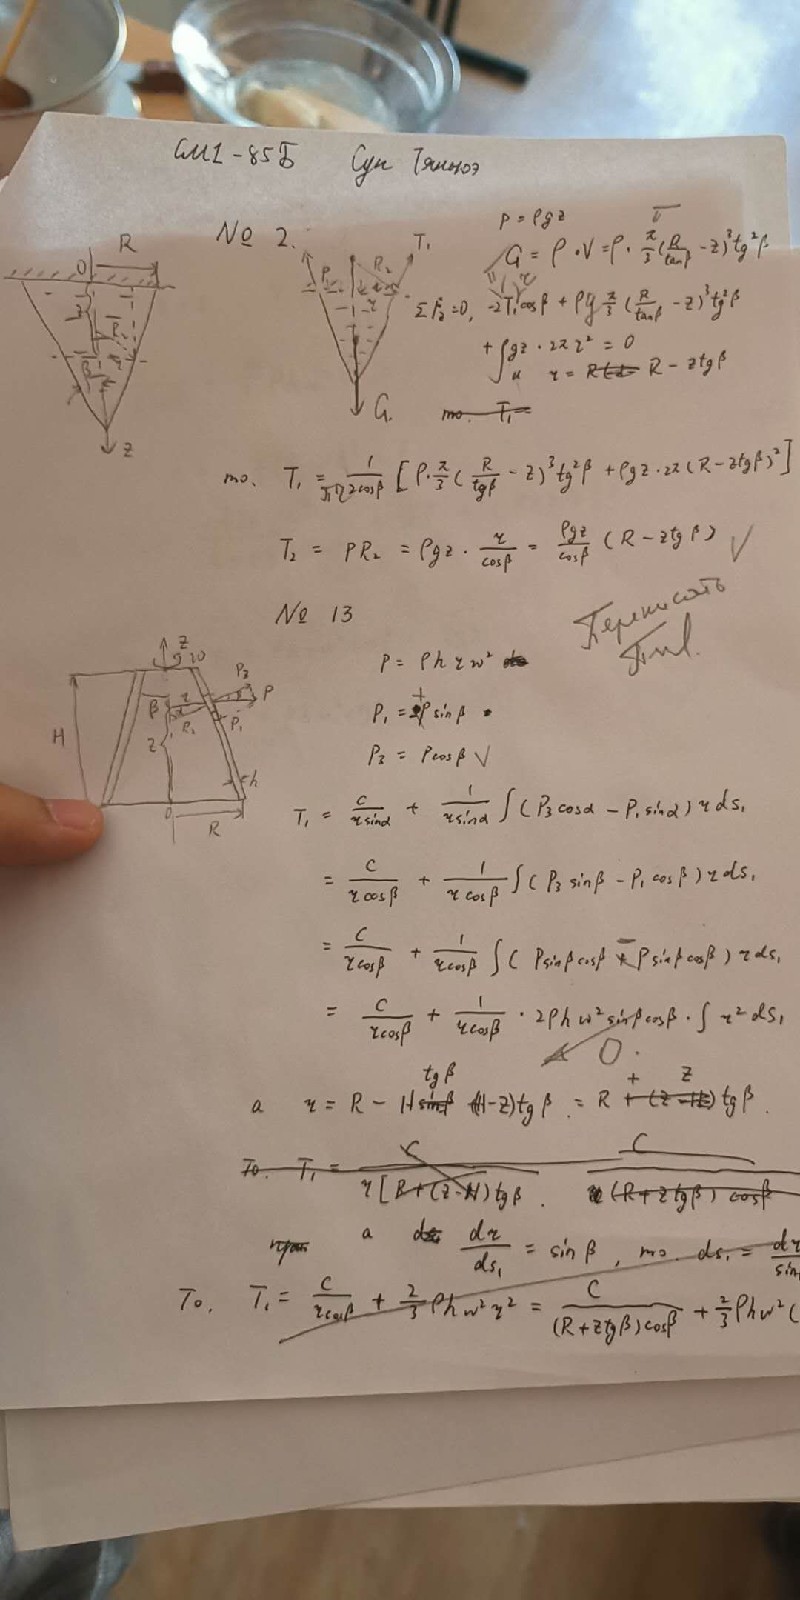 СМ1-85Б Сун Тяньюэ
№ 2.
R
O
z
T₁
R₂
G.
P = ρgz
G = ρ·V = ρ· π/3 (R/tanβ − z)³ tg²β
ΣF_z = 0, −2T₁ cosβ + ρg π/3 (R/tanβ − z)³ tg²β
+ ∫ρgz · 2π r² = 0
r = R − z tgβ
mo. T₁ =
mo. T₁ = 1/(2cosβ) [ρ· π/3 (R/tgβ − z)³ tg²β + ρgz·2π (R − z tgβ)²]
T₂ = PR₂ = ρgz · r/cosβ = ρgz/cosβ (R − z tgβ) √
Переписать
№ 13
z
H
β
R
h
P
P₁
P₃
P = ρ h r w²
P₁ = + P sinβ
P₃ = P cosβ √
T₁ = C/(r sinα) + 1/(r sinα) ∫(P₃ cosα − P₁ sinα) r ds₁
= C/(r cosβ) + 1/(r cosβ) ∫(P₃ sinβ − P₁ cosβ) r ds₁
= C/(r cosβ) + 1/(r cosβ) ∫(P sinβ cosβ − P sinβ cosβ) r ds₁
= C/(r cosβ) + 1/(r cosβ) · 2ρh w² sinβ cosβ · ∫ r² ds₁
O.
a r = R − H tgβ (H−z) tgβ = R + z tgβ.
To. T₁ = C/(r [R + (z−H) tgβ . C/((R + z tgβ) cosβ
a dr/ds₁ = sinβ , mo. ds₁ = dr/sin
To, T₁ = C/(r cosβ) + 2/3 ρh w² r² = C/((R + z tgβ) cosβ) + 2/3 ρh w² (